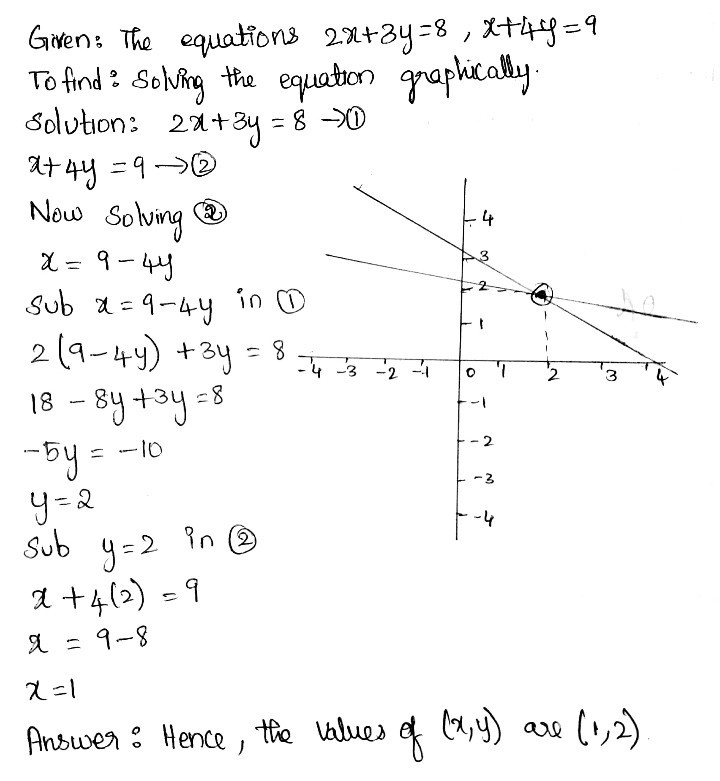 Given: The equations 2x+3y=8 , x+4y=9
To find: Solving the equation graphically.
Solution: 2x+3y = 8 →①
x+4y = 9 →②
Now Solving ②
x = 9-4y
Sub x = 9-4y in ①
2(9-4y) +3y = 8
18 - 8y +3y =8
-5y = -10
y=2
Sub y=2 in ②
x +4(2) =9
x = 9-8
x=1
Answer: Hence, the values of (x,y) are (1,2)
4
3
2
1
-4 -3 -2 -1 0 1 2 3 4
-1
-2
-3
-4